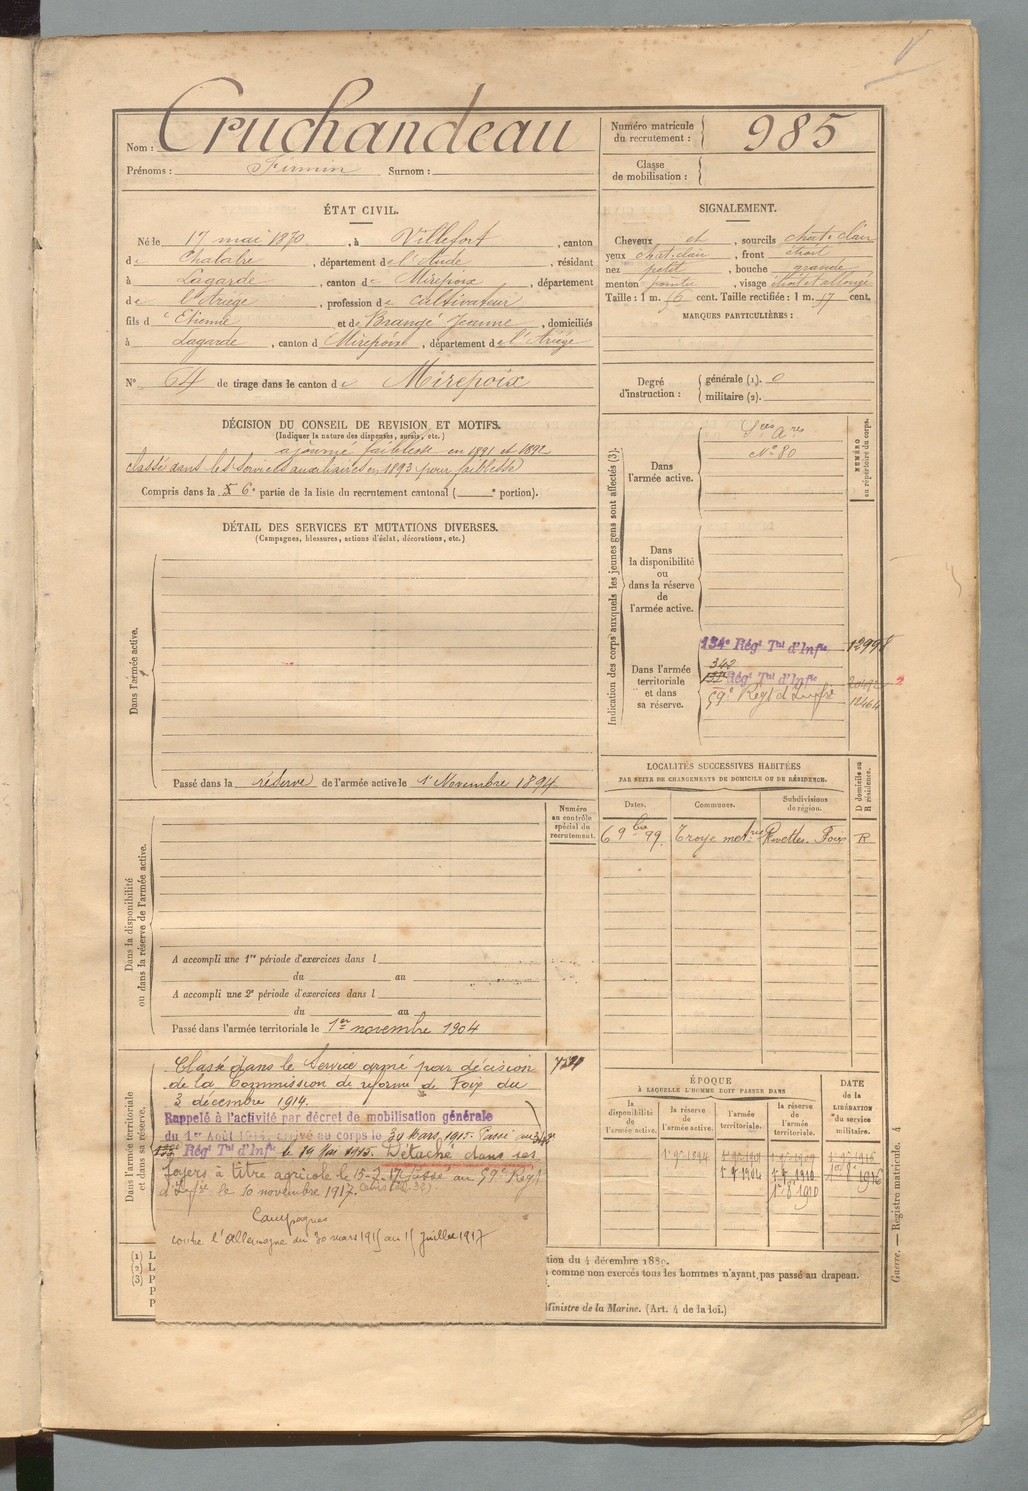 Nom : Cruchandeau
Prénoms : Firmin Surnom :
Numéro matricule du recrutement : 985
Classe de mobilisation :
ÉTAT CIVIL.
Né le 17 mai 1870, à Villefort, canton
de Chalabre, département de l'Aude, résidant
à Lagarde, canton de Mirepoix, département
de l'Ariège, profession de cultivateur
fils d'Etienne et de Brangé Jeanne, domiciliés
à Lagarde, canton de Mirepoix, département de l'Ariège
N° 64 de tirage dans le canton de Mirepoix
SIGNALEMENT.
Cheveux et, sourcils chat. clair
yeux chat. clair, front étroit
nez petit, bouche grande
menton pointu, visage étroit et allongé
Taille : 1 m. 56 cent. Taille rectifiée : 1 m. 57 cent.
MARQUES PARTICULIÈRES :
Degré d'instruction : générale (1). 0
militaire (2).
DÉCISION DU CONSEIL DE REVISION ET MOTIFS.
(Indiquer la nature des dispenses, sursis, etc.)
ajourné faiblesse en 1891 et 1892
Classé dans les Services auxiliaires en 1893 pour faiblesse
Compris dans la 6e partie de la liste du recrutement cantonal ( e portion).
DÉTAIL DES SERVICES ET MUTATIONS DIVERSES.
(Campagnes, blessures, actions d'éclat, décorations, etc.)
Dans l'armée active.
Passé dans la réserve de l'armée active le 1er Novembre 1894
Indication des corps auxquels les jeunes gens sont affectés (3).
NUMÉRO au répertoire du corps.
Dans l'armée active.
Sces Ares
N° 80
Dans la disponibilité ou dans la réserve de l'armée active.
Dans l'armée territoriale et dans sa réserve.
134e Régt Tal d'Infie
342
132e Régt Tal d'Infie
59e Régt d'Infie
12464
LOCALITÉS SUCCESSIVES HABITÉES
PAR SUITE DE CHANGEMENTS DE DOMICILE OU DE RÉSIDENCE.
Dates. Communes. Subdivisions de région. D domicile ou R résidence.
6 9bre 99 Troye Foix R
Dans la disponibilité ou dans la réserve de l'armée active.
Numéro au contrôle spécial du recrutement.
A accompli une 1re période d'exercices dans l
du au
A accompli une 2e période d'exercices dans l
du au
Passé dans l'armée territoriale le 1er novembre 1904
Dans l'armée territoriale et dans sa réserve.
Classé dans le Service armé par décision
de la Commission de réforme de Foix du
3 décembre 1914.
Rappelé à l'activité par décret de mobilisation générale
du 1er Août 1914, arrivé au corps le 30 Mars 1915. Passé au
Régt Tal d'Infie le 19 Mai 1915. Détaché dans ses
foyers à titre agricole le 15-7-17. Passé au 59e Régt
d'Infie le 10 novembre 1917.
Campagnes
contre l'Allemagne du 30 mars 1915 au 15 juillet 1917
ÉPOQUE
À LAQUELLE L'HOMME DOIT PASSER DANS
la disponibilité de l'armée active. la réserve de l'armée active. l'armée territoriale. la réserve de l'armée territoriale.
DATE de la LIBÉRATION du service militaire.
(1) L
(2) L
(3) P
P
P
tion du 4 décembre 1889.
comme non exercés tous les hommes n'ayant pas passé au drapeau.
Ministre de la Marine. (Art. 4 de la loi.)
Guerre. — Registre matricule. 4